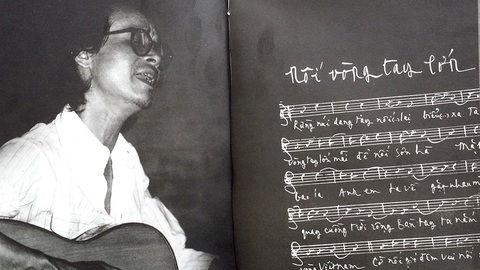 nối vòng tay lớn
Rừng núi dang tay nối lại biển xa Ta
vòng tay lớn mãi để nối sơn hà Mặt
bao la Anh em ta về gặp nhau m
quay cuồng trời rộng bàn tay ta nắm
vòng Việt Nam Cờ nối gió đêm vui nối